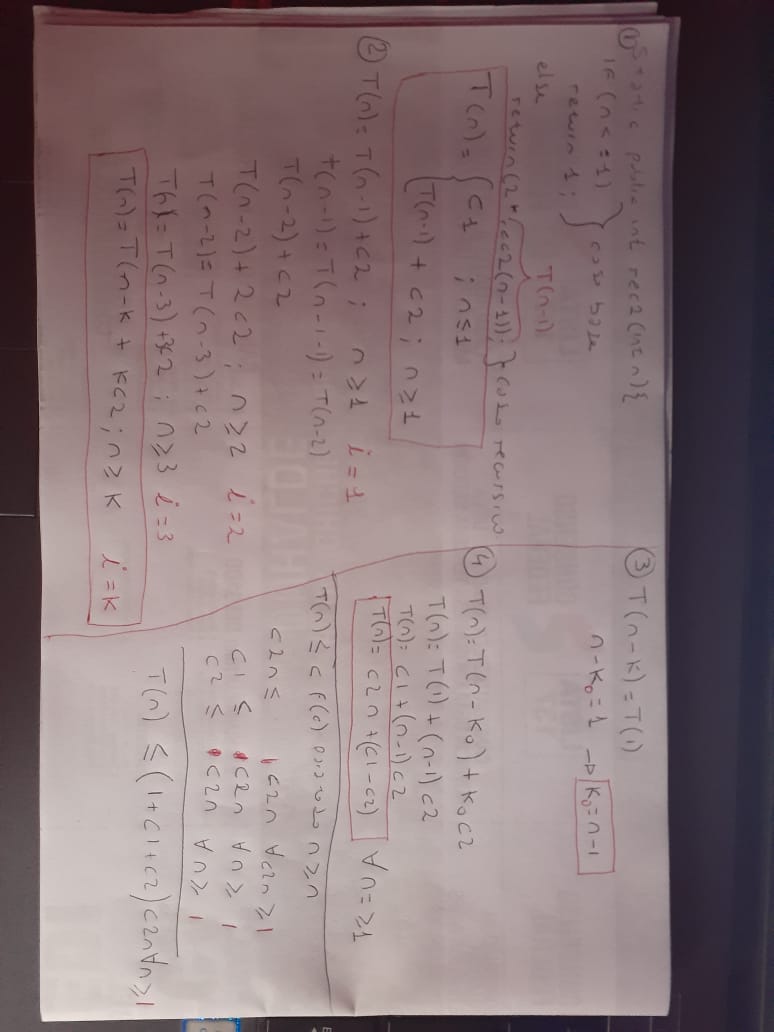 ① Static public int rec2(int n){
if (n<=1)
return 1; } caso base
else
T(n-1)
return(2*rec2(n-1)); } caso recursivo
T(n) = { c1 ; n≤1
T(n-1) + c2 ; n≥1
② T(n) = T(n-1) + c2 ; n≥1 i=1
T(n-1) = T(n-1-1) = T(n-2)
T(n-2) + c2
T(n-2) + 2c2 ; n≥2 i=2
T(n-2) = T(n-3) + c2
T(n) = T(n-3) + 3c2 ; n≥3 i=3
T(n) = T(n-k + kc2 ; n≥k i=k
③ T(n-k) = T(1)
n-k₀=1 → k₀=n-1
④ T(n) = T(n-k₀) + k₀c2
T(n) = T(1) + (n-1)c2
T(n) = c1 + (n-1)c2
T(n) = c2n + (c1-c2) ∀n=≥1
T(n) ≤ c f(n) para todo n≥n
c2n ≤ 1c2n ∀c2n≥1
c1 ≤ c2n ∀n≥1
c2 ≤ c2n ∀n≥1
T(n) ≤ (1+c1+c2)c2n∀n≥1